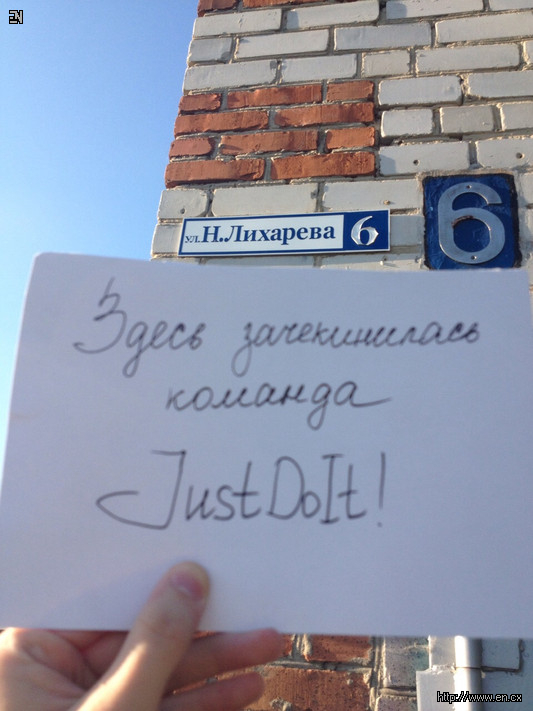 EN
ул. Н.Лихарева 6
6
Здесь зачекинилась
команда
JustDoIt!
http://www.en.cx